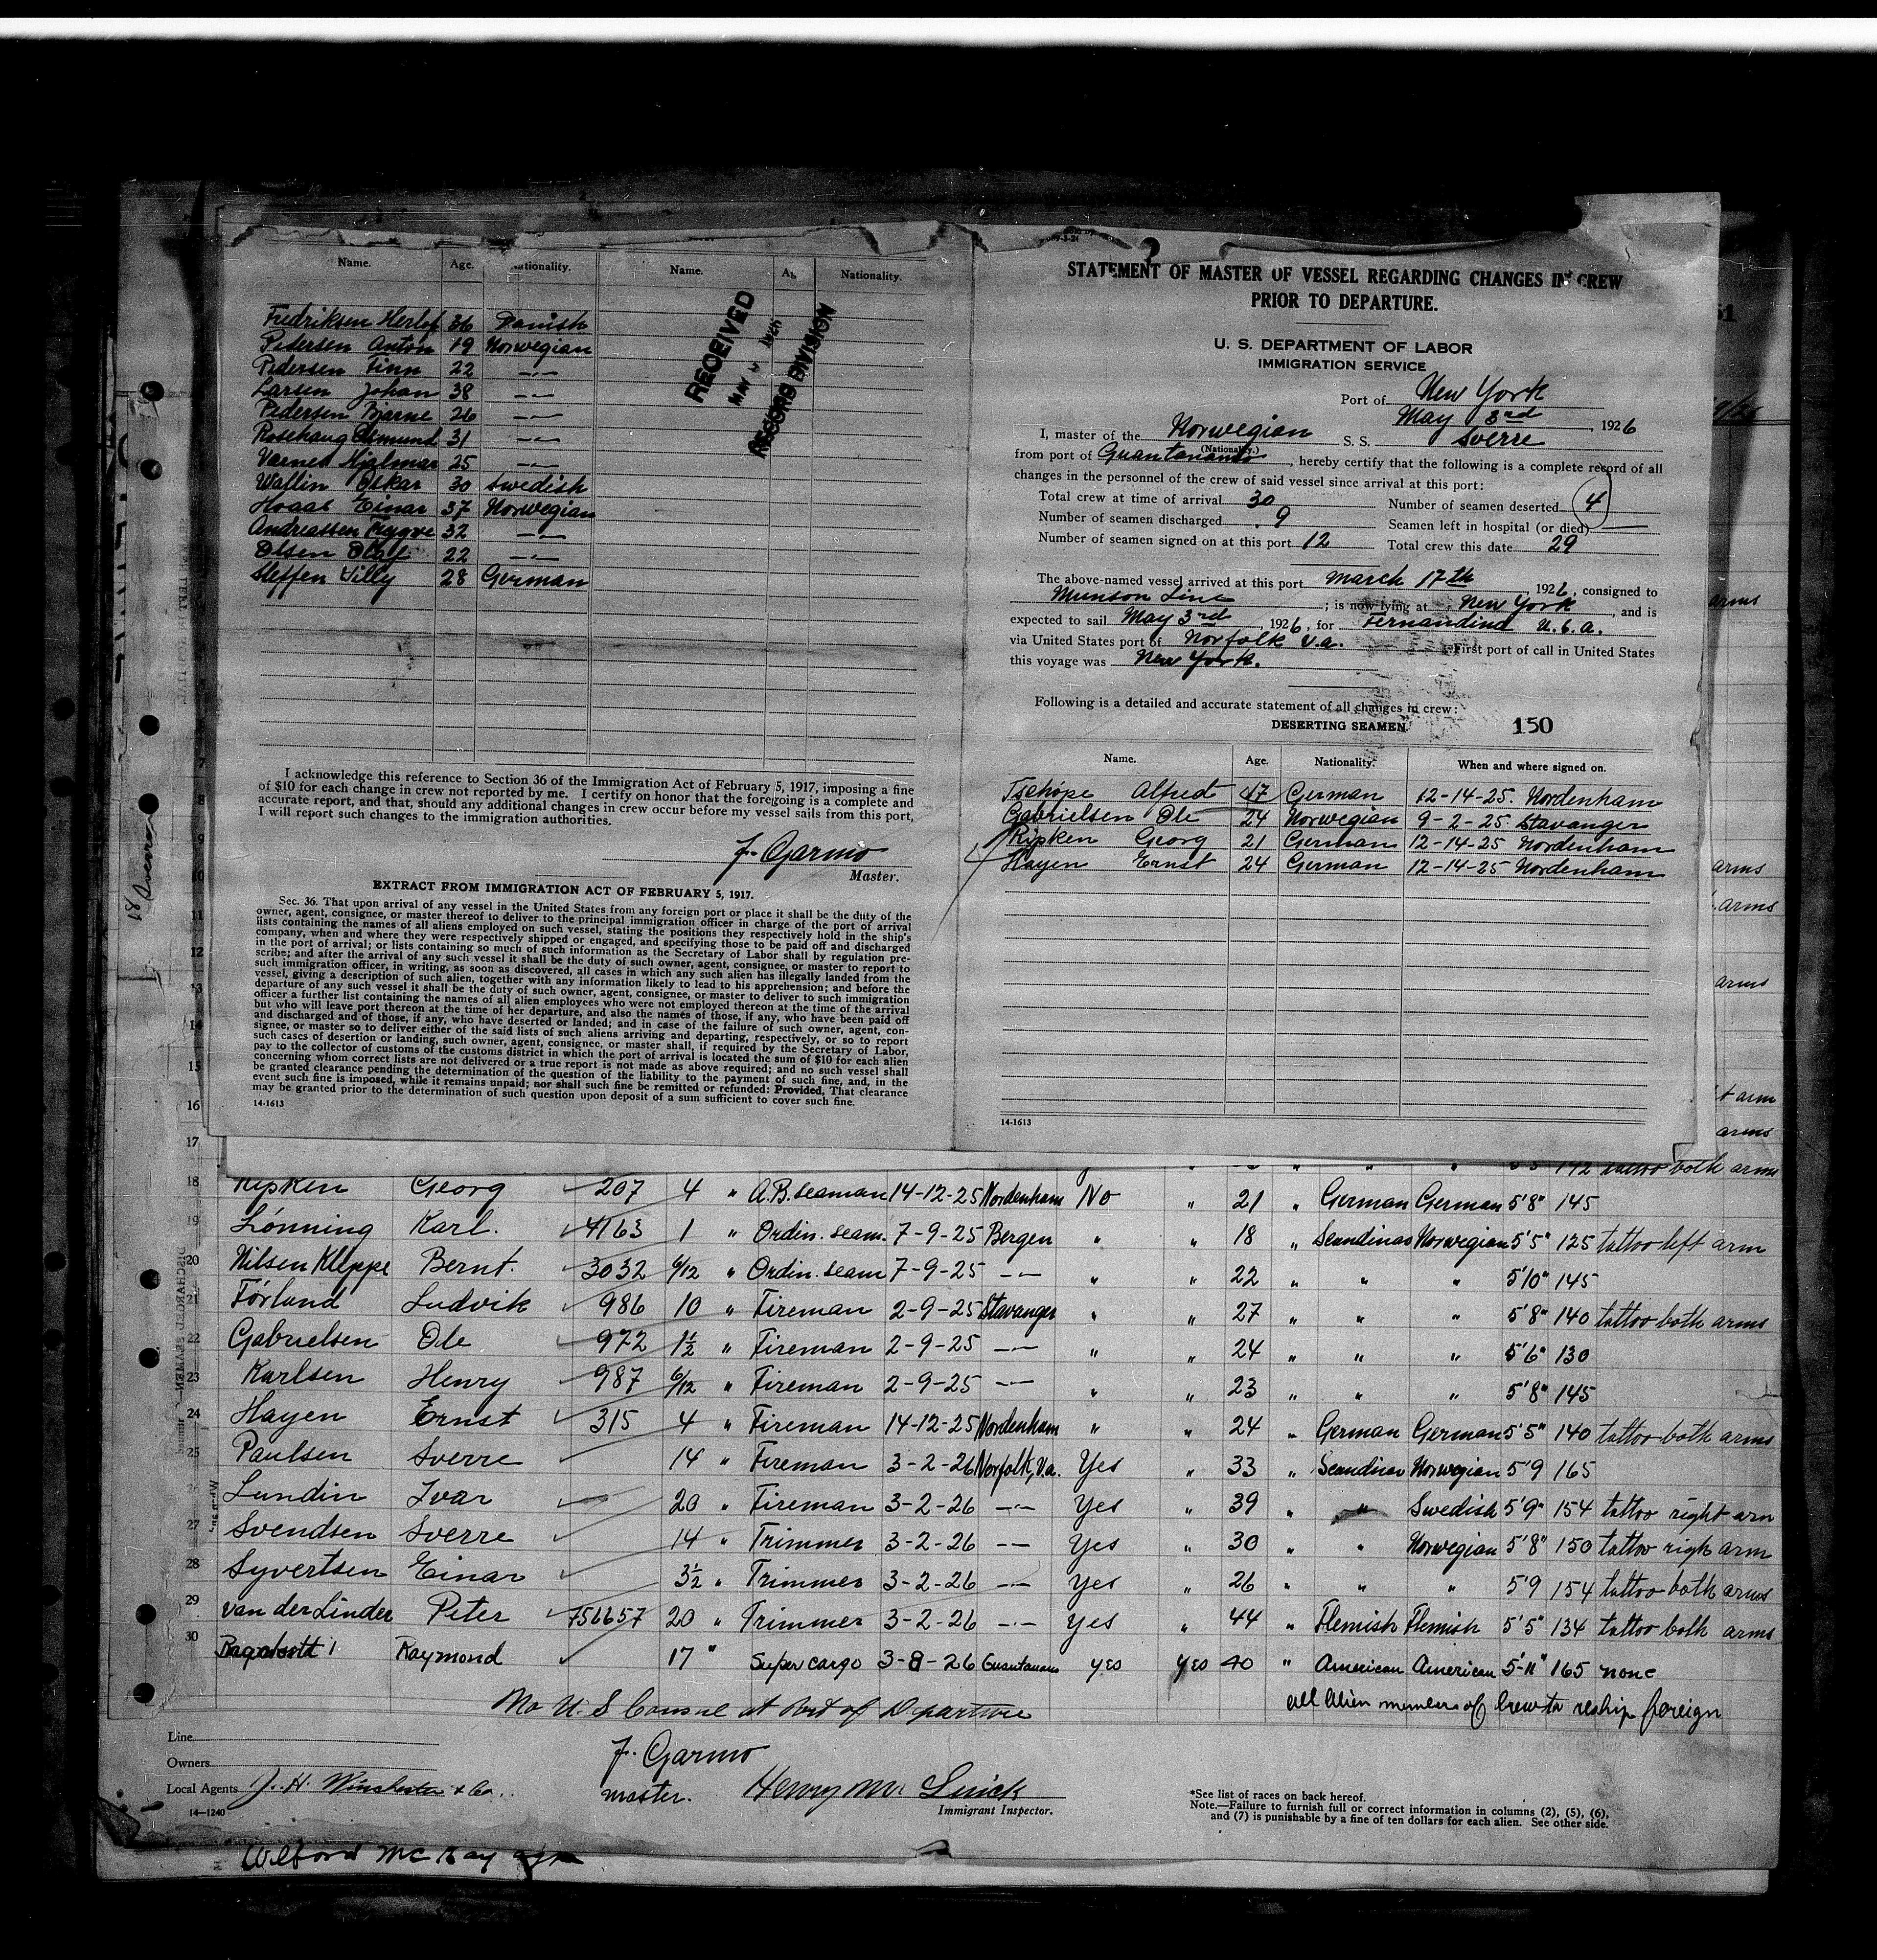 Name. Age. Nationality. Name. Nationality.
Fredriksen Herlof 36 Danish
Pedersen Anton 19 Norwegian
Pedersen Finn 22 -"-
Larsen Johan 38 -"-
Pedersen Bjarne 26 -"-
Rosehaug 31 -"-
Varnes Hjalmar 25 -"-
Wallin Oskar 30 Swedish
Hoaas Einar 37 Norwegian
Andreassen Trygve 32 -"-
Olsen Olaf 22 -"-
Steffen Willy 28 German
RECEIVED
MAY 1926
RECORD DIVISION
I acknowledge this reference to Section 36 of the Immigration Act of February 5, 1917, imposing a fine
of $10 for each change in crew not reported by me. I certify on honor that the foregoing is a complete and
accurate report, and that, should any additional changes in crew occur before my vessel sails from this port,
I will report such changes to the immigration authorities.
F. Garmo
Master.
EXTRACT FROM IMMIGRATION ACT OF FEBRUARY 5, 1917.
Sec. 36. That upon arrival of any vessel in the United States from any foreign port or place it shall be the duty of the
owner, agent, consignee, or master thereof to deliver to the principal immigration officer in charge of the port of arrival
lists containing the names of all aliens employed on such vessel, stating the positions they respectively hold in the ship's
company, when and where they were respectively shipped or engaged, and specifying those to be paid off and discharged
in the port of arrival; or lists containing so much of such information as the Secretary of Labor shall by regulation pre-
scribe; and after the arrival of any such vessel it shall be the duty of such owner, agent, consignee, or master to report to
such immigration officer, in writing, as soon as discovered, all cases in which any such alien has illegally landed from the
vessel, giving a description of such alien, together with any information likely to lead to his apprehension; and before the
departure of any such vessel it shall be the duty of such owner, agent, consignee, or master to deliver to such immigration
officer a further list containing the names of all alien employees who were not employed thereon at the time of the arrival
but who will leave port thereon at the time of her departure, and also the names of those, if any, who have been paid off
and discharged and of those, if any, who have deserted or landed; and in case of the failure of such owner, agent, con-
signee, or master so to deliver either of the said lists of such aliens arriving and departing, respectively, or so to report
such cases of desertion or landing, such owner, agent, consignee, or master shall, if required by the Secretary of Labor,
pay to the collector of customs of the customs district in which the port of arrival is located the sum of $10 for each alien
concerning whom correct lists are not delivered or a true report is not made as above required; and no such vessel shall
be granted clearance pending the determination of the question of the liability to the payment of such fine, and, in the
event such fine is imposed, while it remains unpaid; nor shall such fine be remitted or refunded: Provided, That clearance
may be granted prior to the determination of such question upon deposit of a sum sufficient to cover such fine.
14-1613
STATEMENT OF MASTER OF VESSEL REGARDING CHANGES IN CREW
PRIOR TO DEPARTURE.
U. S. DEPARTMENT OF LABOR
IMMIGRATION SERVICE
Port of New York
May 3rd, 1926
I, master of the Norwegian S. S. Sverre
(Nationality.)
from port of Guantanamo, hereby certify that the following is a complete record of all
changes in the personnel of the crew of said vessel since arrival at this port:
Total crew at time of arrival 30 Number of seamen deserted 4
Number of seamen discharged 9 Seamen left in hospital (or died)
Number of seamen signed on at this port 12 Total crew this date 29
The above-named vessel arrived at this port March 17th, 1926, consigned to
Munson Line; is now lying at New York, and is
expected to sail May 3rd, 1926, for Fernandina U.S.A.
via United States port of Norfolk Va. First port of call in United States
this voyage was New York.
Following is a detailed and accurate statement of all changes in crew:
DESERTING SEAMEN 150
Name. Age. Nationality. When and where signed on.
Tschöpe Alfred 17 German 12-14-25. Nordenham
Gabrielsen Ole 24 Norwegian 9-2-25 Stavanger
Ripken Georg 21 German 12-14-25 Nordenham
Hayen Ernst 24 German 12-14-25 Nordenham
14-1613
142 tattoo both arms
18 Ripken Georg 207 4 " A.B. seaman 14-12-25 Nordenham No " 21 " German German 5'8" 145
19 Lönning Karl. 4163 1 " Ordin. seam. 7-9-25 Bergen " " 18 " Scandinav Norwegian 5'5" 125 tattoo left arm
20 Nilsen Kleppe Bernt. 3032 6/12 " Ordin. seam 7-9-25 -"- " " 22 " " " 5'10" 145
21 Förland Ludvik 986 10 " Fireman 2-9-25 Stavanger " " 27 " " " 5'8" 140 tattoo both arms
22 Gabrielsen Ole 972 1½ " Fireman 2-9-25 -"- " " 24 " " " 5'6" 130
23 Karlsen Henry 987 6/12 " Fireman 2-9-25 -"- " " 23 " " " 5'8" 145
24 Hayen Ernst 315 4 " Fireman 14-12-25 Nordenham " " 24 " German German 5'5" 140 tattoo both arms
25 Paulsen Sverre 14 " Fireman 3-2-26 Norfolk, Va. Yes " 33 " Scandinav Norwegian 5'9 165
26 Lundin Ivar 20 " Fireman 3-2-26 -"- Yes " 39 " " Swedish 5'9" 154 tattoo right arm
27 Svendsen Sverre 14 " Trimmer 3-2-26 -"- Yes " 30 " " Norwegian 5'8" 150 tattoo righ arm
28 Syvertsen Einar 3½ " Trimmer 3-2-26 -"- Yes " 26 " " " 5'9 154 tattoo both arms
29 van der Linder Peter 756657 20 " Trimmer 3-2-26 -"- Yes " 44 " Flemish Flemish 5'5" 134 tattoo both arms
30 Raymond 17 " Super cargo 3-8-26 Guantanamo yes yes 40 " American American 5'-11" 165 none
No U. S Consul at Port of Departure
all Alien members of crew to reship foreign
Line
Owners
Local Agents J. H. Winchester & Co.
14-1240
F. Garmo
master.
Henry M.
Immigrant Inspector.
*See list of races on back hereof.
Note.—Failure to furnish full or correct information in columns (2), (5), (6),
and (7) is punishable by a fine of ten dollars for each alien. See other side.
Wilford McKay